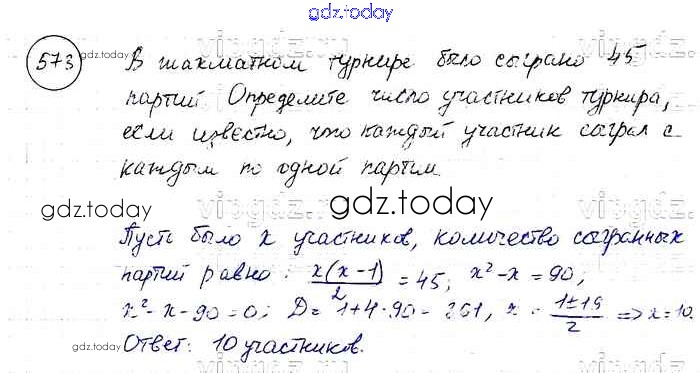 gdz.today
573 gdz.today В шахматном турнире было сыграно 45
партий Определите число участников турнира,
если известно, что каждый участник сыграл с
каждым по одной партии.
gdz.today gdz.today
Пусть было x участников, количество сыгранных
партий равно: x(x-1)/2 = 45; x²-x=90,
x²-x-90=0; D=1+4·90=361, x = 1±19/2 => x=10
gdz.today Ответ: 10 участников.